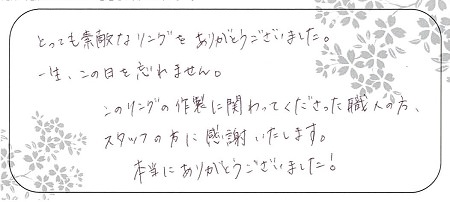 とっても素敵なリングをありがとうございました。
一生、この日を忘れません。
このリングの作製に関わってくださった職人の方、
スタッフの方に感謝いたします。
本当にありがとうございました!